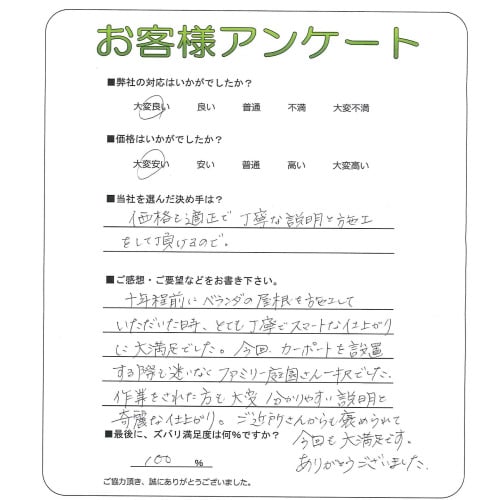 お客様アンケート
■弊社の対応はいかがでしたか?
大変良い 良い 普通 不満 大変不満
■価格はいかがでしたか?
大変安い 安い 普通 高い 大変高い
■当社を選んだ決め手は?
価格も適正で丁寧な説明と施工
をして頂けるので。
■ご感想・ご要望などをお書き下さい。
十年程前にベランダの屋根を施工して
いただいた時、とても丁寧でスマートな仕上がり
に大満足でした。今回、カーポートを設置
する際も迷いなくファミリー庭園さん一択でした。
作業をされた方も大変分かりやすい説明と
綺麗な仕上がり。ご近所さんからも褒められて
今回も大満足です。
ありがとうございました。
■最後に、ズバリ満足度は何%ですか?
100 %
ご協力頂き、誠にありがとうございました。